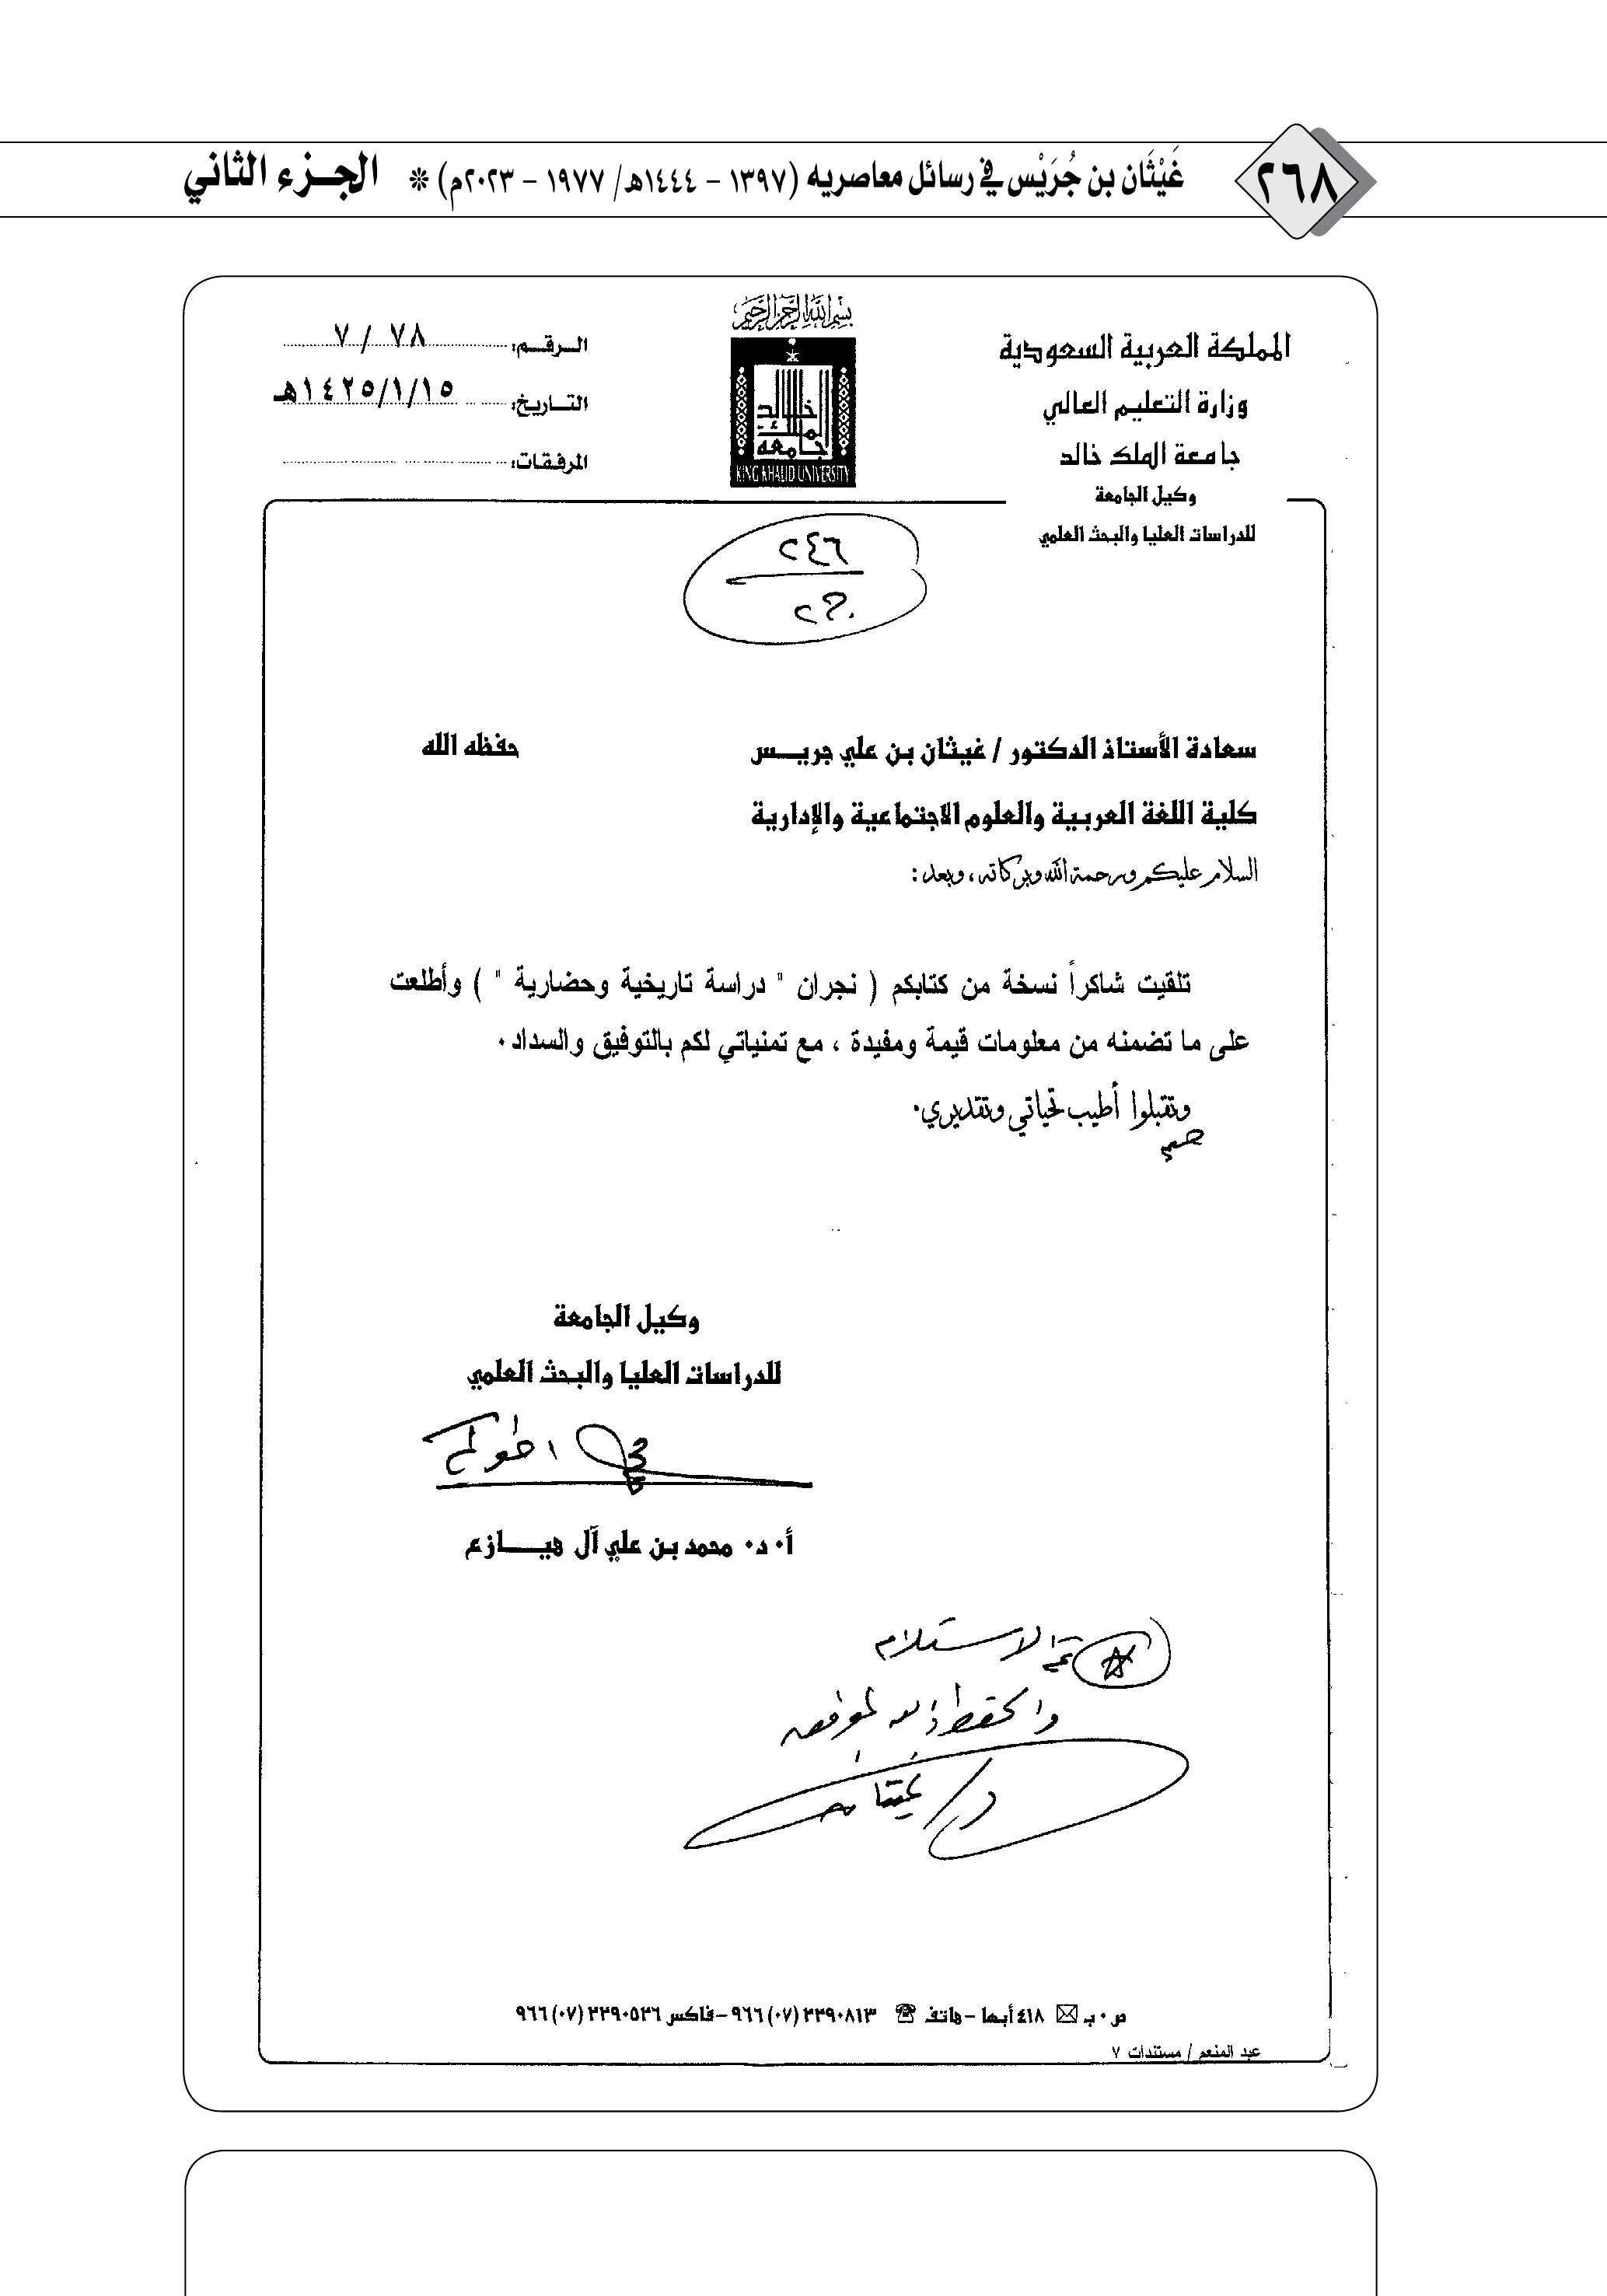 ٢٦٨
غَيْثَان بن جُرَيْس في رسائل معاصريه (١٣٩٧ – ١٤٤٤هـ/ ١٩٧٧ – ٢٠٢٣م) * الجـزء الثاني
بسم الله الرحمن الرحيم
المملكة العربية السعودية
وزارة التعليم العالي
جامعة الملك خالد
وكيل الجامعة
للدراسات العليا والبحث العلمي
جامعة الملك خالد
KING KHALID UNIVERSITY
الـرقـم: ٧٨ / ٧
التـاريخ: ١٤٢٥/١/١٥هـ
المرفـقات:
٢٤٦
سعادة الأستاذ الدكتور / غيثان بن علي جريـــس حفظه الله
كلية اللغة العربية والعلوم الاجتماعية والإدارية
السلام عليكم ورحمة الله وبركاته ، وبعد :
تلقيت شاكراً نسخة من كتابكم ( نجران " دراسة تاريخية وحضارية " ) وأطلعت
على ما تضمنه من معلومات قيمة ومفيدة ، مع تمنياتي لكم بالتوفيق والسداد ٠
وتقبلوا أطيب تحياتي وتقديري ٠
وكيل الجامعة
للدراسات العليا والبحث العلمي
أخوكم
أ٠ د٠ محمد بن علي آل هيـــازع
تم الاستلام
والحفظ الموفق
د/ غيثان
ص ٠ ب ٤١٨ أبها – هاتف ٢٢٩٠٨١٣ (٠٧) ٩٦٦ – فاكس ٢٢٩٠٥٣٦ (٠٧) ٩٦٦
عبد المنعم / مستندات ٧